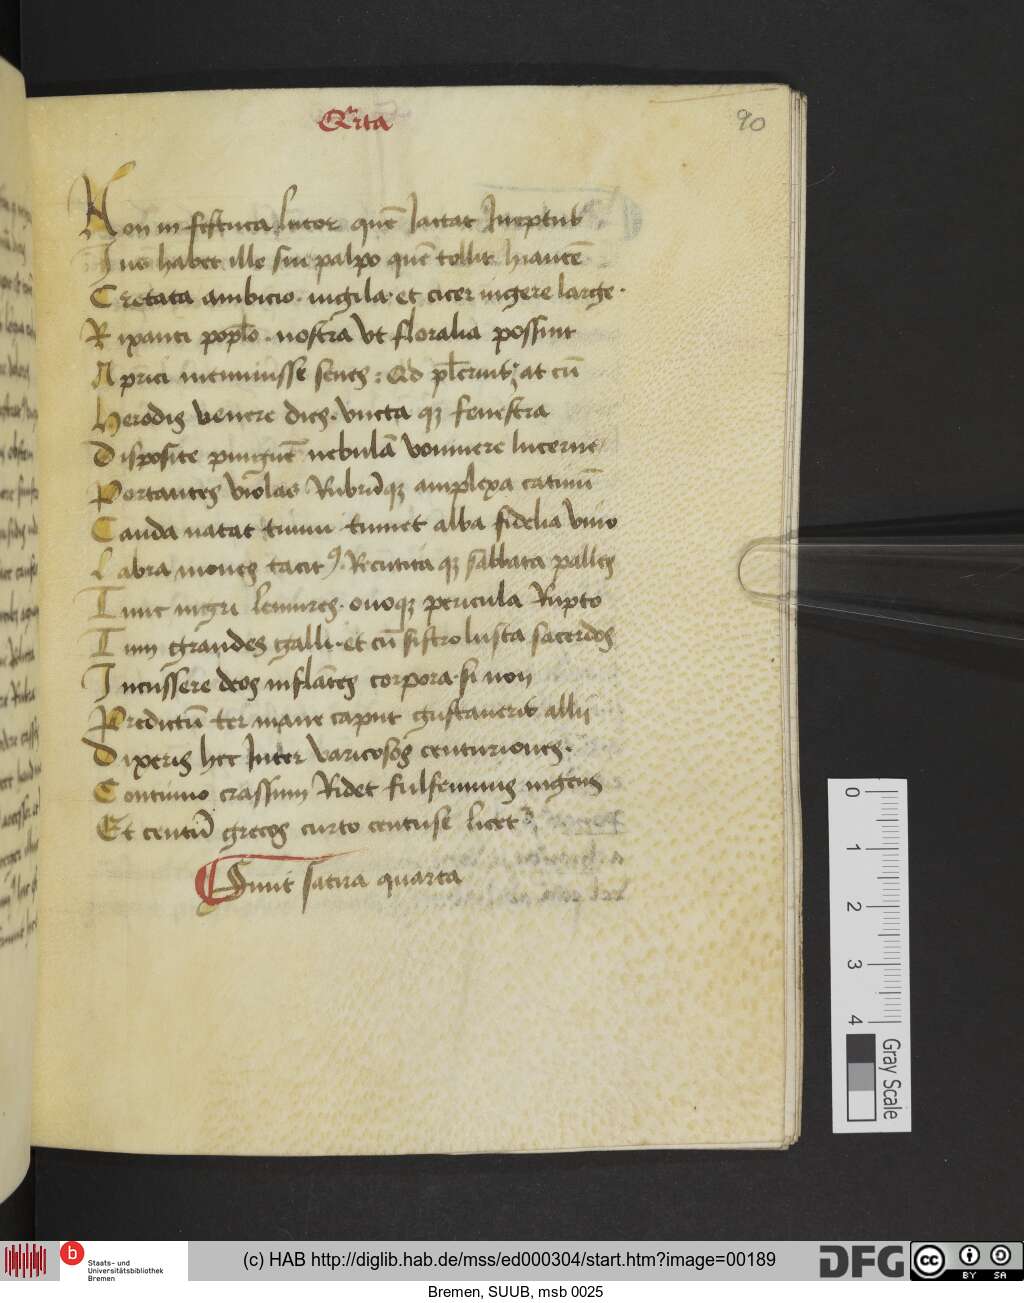 Qrta
90
Non in festuca lictor quē Iactat Ineptus
Ius habet ille sui palpo quē tollit hiantē
Cretata ambicio. uigila. et cicer ingere large.
Rixanti poplo. nostra vt floralia possint
Aprici meminisse senes: Qd plcrius? at cū
Herodis venere dies. vncta qꝫ fenestra
Disposite pinguē nebulā vomuere lucerne
Portantes violas Rubrūqꝫ amplexa catinū
Cauda natat tinni tumet alba fidelia vino
Labra moues tacitꝰ. Recutita qꝫ sabbata palles
Tunc nigri lemures. ouoqꝫ pericula Rupto
Tum grandes galli. et cū sistro lusta sacerdos
Incussere deos inflātes corpora. si non
Predictū ter mane caput gustaueris allij
Dixeris hec Inter varicosos centuriones.
Continuo crassum Ridet fulfennius ingens
Et centū grecos curto centuse licet
Finit satira quarta
0
1
2
3
4
Gray Scale
b
Staats- und
Universitätsbibliothek
Bremen
(c) HAB http://diglib.hab.de/mss/ed000304/start.htm?image=00189
DFG
cc
BY SA
Bremen, SUUB, msb 0025